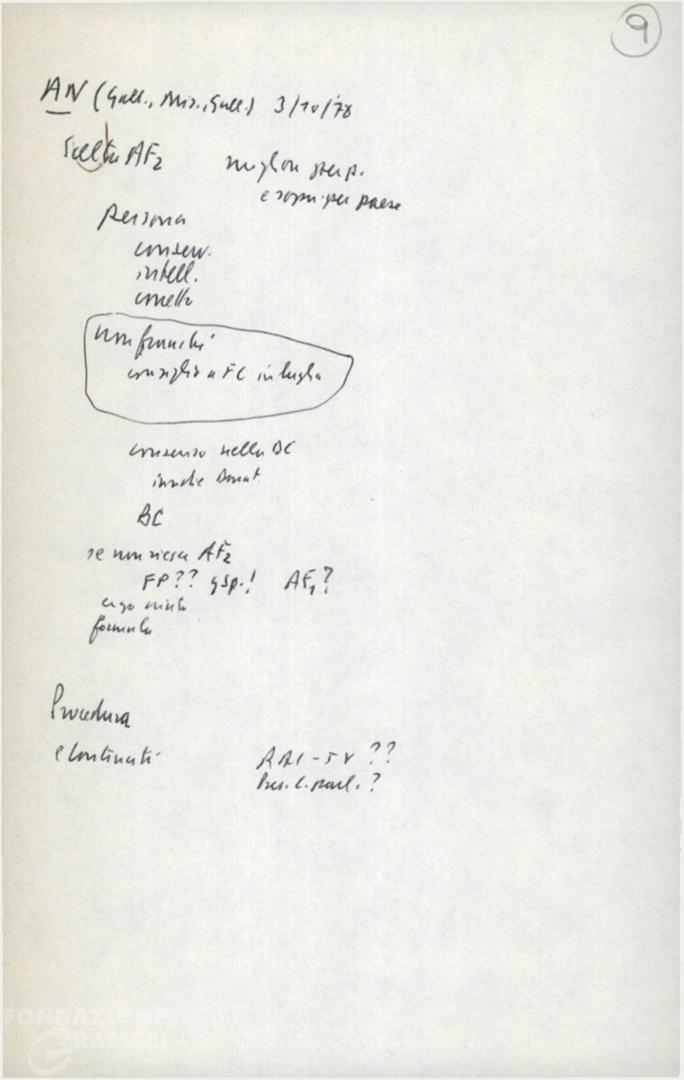 9
AN (Gall., Mis., Gall.) 3/10/78
Scelta AF2
migliori per p.
e sopr. per paese
persona
conserv.
intell.
corretto
non franchi
consiglio a FC in luglio
consenso nella DC
anche Donat
BC
se non riesce AF2
FP?? gsp.! AF1?
ergo
formula
Procedura
e continuità
RAI - TV ??
Pres. C. parl. ?
FONDAZIONE
GRAMSCI